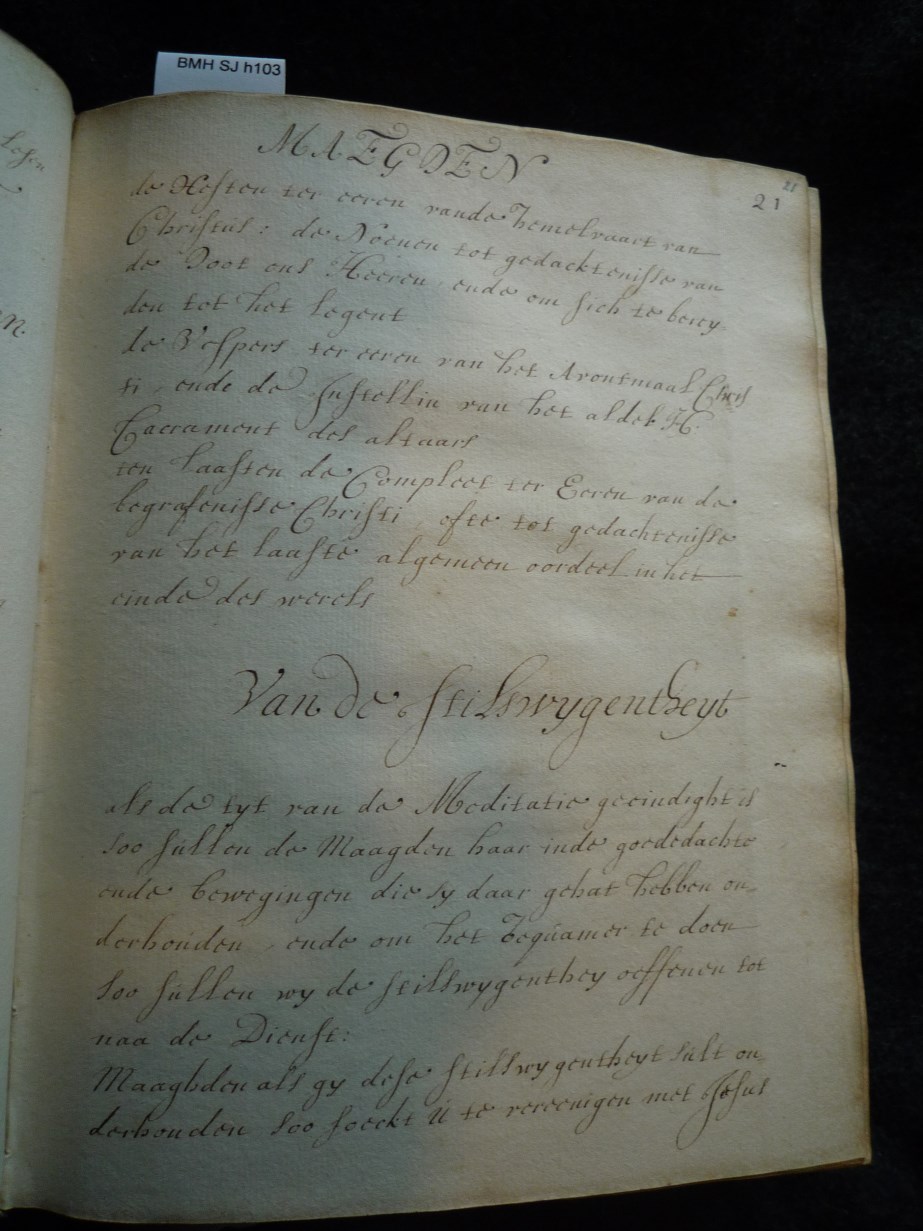 BMH SJ h103
MAEGDEN
21
21
de Sesten ter eeren vande hemelvaart van
Christus: de Noenen tot gedacktenisse van
de Doot ons Heeren, ende om sich te berey-
den tot het segent
de Vespers ter eeren van het Avontmaal Chris
ti, ende de Instellin van het alder H.
Sacrament des altaars
ten laasten de Compleet ter Eeren van de
begrafenisse Christi, ofte tot gedachtenisse
van het laaste algemeen oordeel in het
einde des werels
Van de stilswygentheyt
als de tyt van de Meditatie geeindight is
soo sullen de Maagden haar inde goede dachte
ende bewegingen die sy daar gehat hebben on-
derhouden, ende om het bequamer te doen
soo sullen wy de stilswygenthey oeffenen tot
naa de Dienst:
Maaghden als gy dese stilswygentheyt sult on-
derhouden soo soeckt u te vereenigen met Jesus